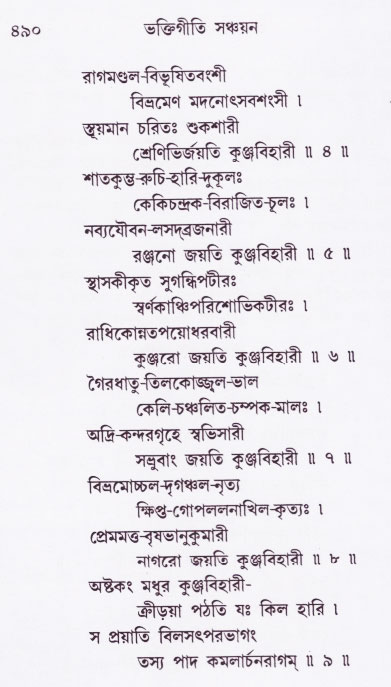 ৪৯০
ভক্তিগীতি সঞ্চয়ন
রাগমণ্ডল-বিভূষিতবংশী
বিভ্রমেণ মদনোৎসবশংসী ।
স্তূয়মান চরিতঃ শুকশারী
শ্রেণিভির্জয়তি কুঞ্জবিহারী ॥ ৪ ॥
শাতকুম্ভ-রুচি-হারি-দুকূলঃ
কেকিচন্দ্রক-বিরাজিত-চূলঃ ।
নব্যযৌবন-লসদ্ব্রজনারী
রঞ্জনো জয়তি কুঞ্জবিহারী ॥ ৫ ॥
স্থাসকীকৃত সুগন্ধিপটীরঃ
স্বর্ণকাঞ্চিপরিশোভিকটীরঃ ।
রাধিকোন্নতপয়োধরবারী
কুঞ্জরো জয়তি কুঞ্জবিহারী ॥ ৬ ॥
গৈরধাতু-তিলকোজ্জ্বল-ভাল
কেলি-চঞ্চলিত-চম্পক-মালঃ ।
অদ্রি-কন্দরগৃহে স্বভিসারী
সভ্রুবাং জয়তি কুঞ্জবিহারী ॥ ৭ ॥
বিভ্রমোচ্চল-দৃগঞ্চল-নৃত্য
ক্ষিপ্ত-গোপললনাখিল-কৃত্যঃ ।
প্রেমমত্ত-বৃষভানুকুমারী
নাগরো জয়তি কুঞ্জবিহারী ॥ ৮ ॥
অষ্টকং মধুর কুঞ্জবিহারী-
ক্রীড়য়া পঠতি যঃ কিল হারি ।
স প্রয়াতি বিলসৎপরভাগং
তস্য পাদ কমলার্চনরাগম্ ॥ ৯ ॥